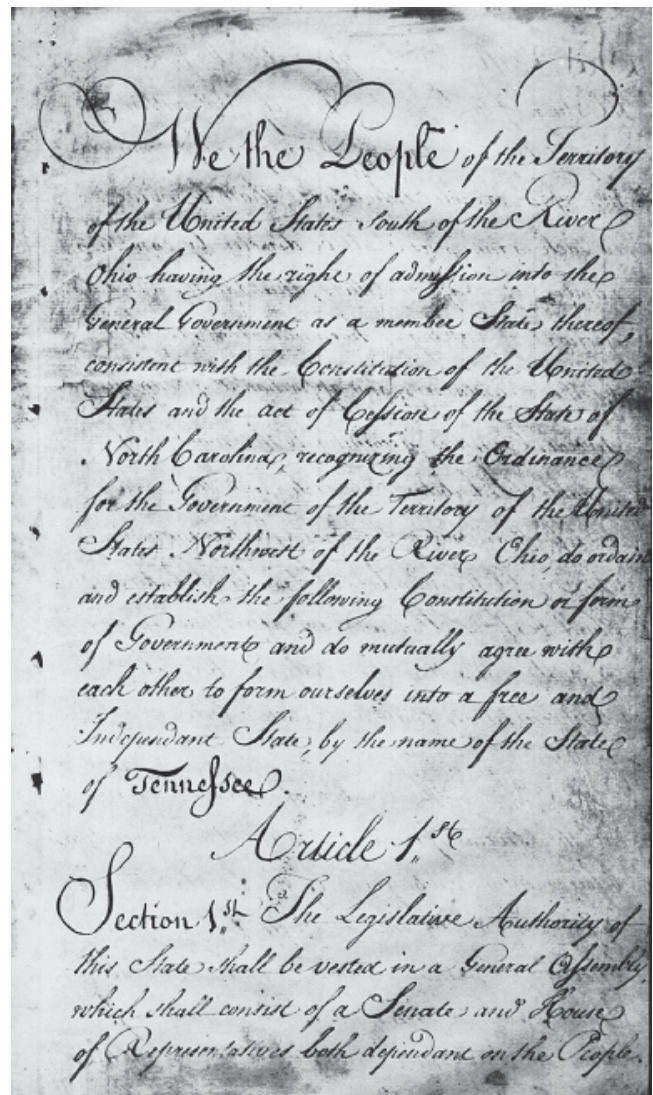 We the People of the Territory
of the United States South of the River
Ohio having the right of admission into the
General Government as a member State thereof,
consistent with the Constitution of the United
States and the act of Cession of the State of
North Carolina, recognizing the Ordinance
for the Government of the Territory of the United
States Northwest of the River Ohio, do ordain
and establish the following Constitution or form
of Government and do mutually agree with
each other to form ourselves into a free and
Independant State, by the name of the State
of Tennessee.
Article 1.st
Section 1.st The Legislative Authority of
this State shall be vested in a General Assembly,
which shall consist of a Senate and House
of Representatives both dependant on the People.